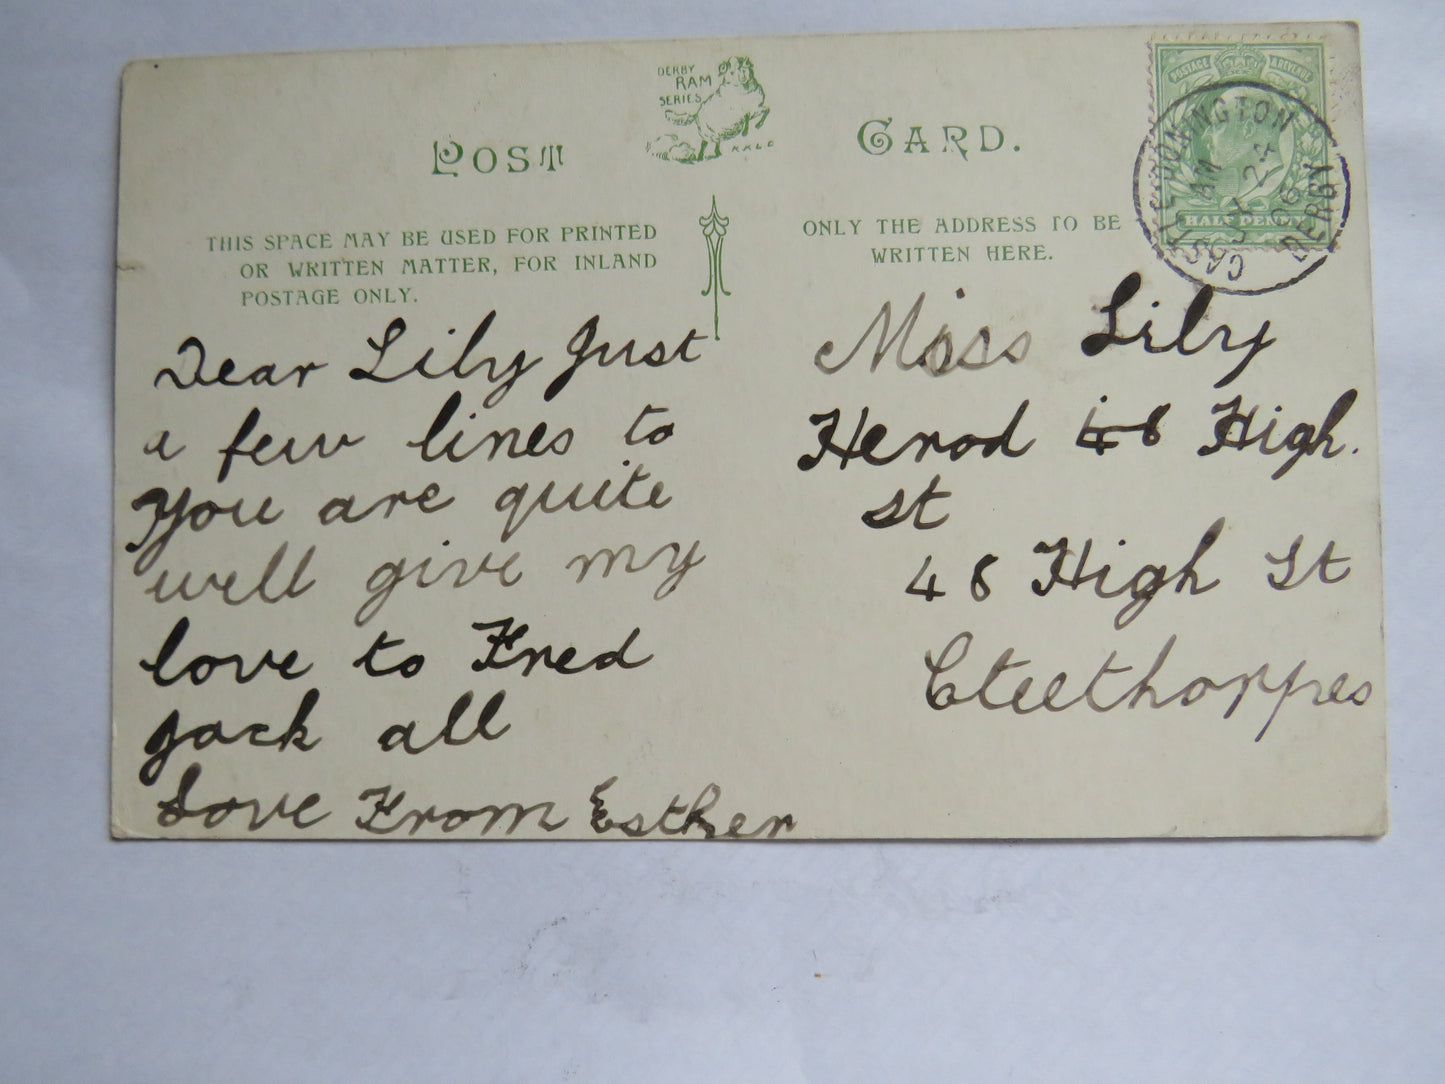 DERBY
RAM
SERIES
POST CARD.
THIS SPACE MAY BE USED FOR PRINTED
OR WRITTEN MATTER, FOR INLAND
POSTAGE ONLY.
ONLY THE ADDRESS TO BE
WRITTEN HERE.
POSTAGE & REVENUE
HALF PENNY
CASTLE DONINGTON
AM
24
06
DERBY
Dear Lily Just
a few lines to
You are quite
well give my
love to Fred
Jack all
Love From Esther
Miss Lily
Herod 48 High.
st
48 High St
Cleethorpes